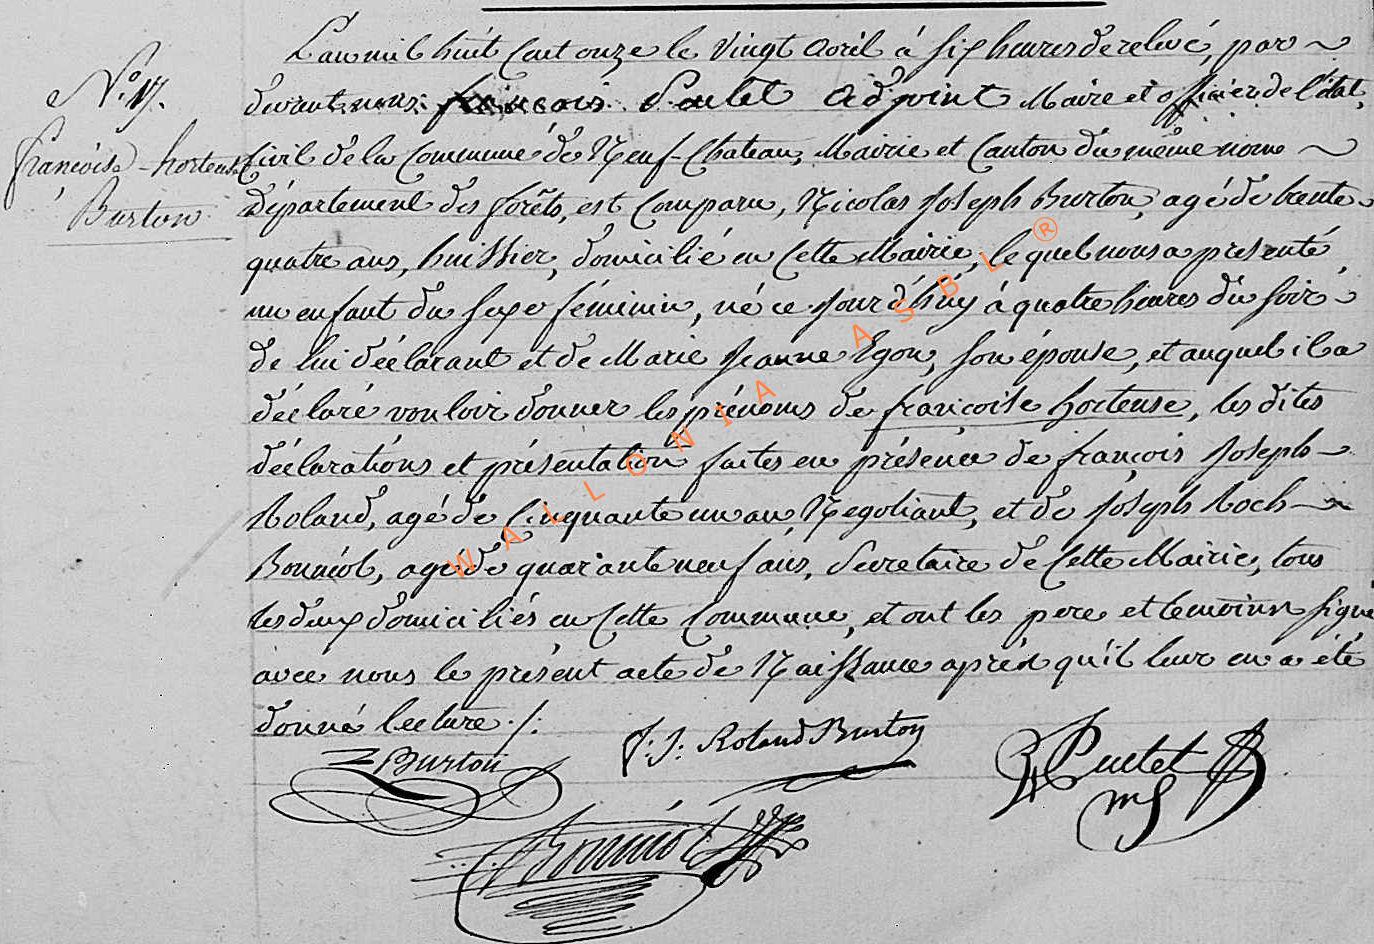 N.° 17.
françoise - hortense
Burton
L'an mil huit cent onze le vingt avril à six heures de relevé, par
devant nous françois Poulet adjoint Maire et officier de l'état
Civil de la Commune de Neuf-Chateau, Mairie et Canton du même nom
département des forêts, est comparu, Nicolas Joseph Burton, agé de trente
quatre ans, huissier, domicilié en cette Mairie, le quel nous a présenté
un enfant du sexe féminin, né ce jourd'huy à quatre heures du soir
de lui déclarant et de Marie Jeanne Egon, son épouse, et auquel il a
déclaré vouloir donner les prénoms de françoise hortense, les dites
déclarations et présentation faites en présence de françois Joseph
Roland, agé de Cinquante un an Negotiant, et de Joseph Roch
Bonniol, agé de quarante neuf ans, Secretaire de cette Mairie, tous
les deux domiciliés en cette Commune, et ont les pere et temoins signé
avec nous le présent acte de Naissance après qu'il leur en a été
donné lecture ./.
Burton
f. J. Roland Burton
Poulet
Bonniol
WALLONIA ASBL ®